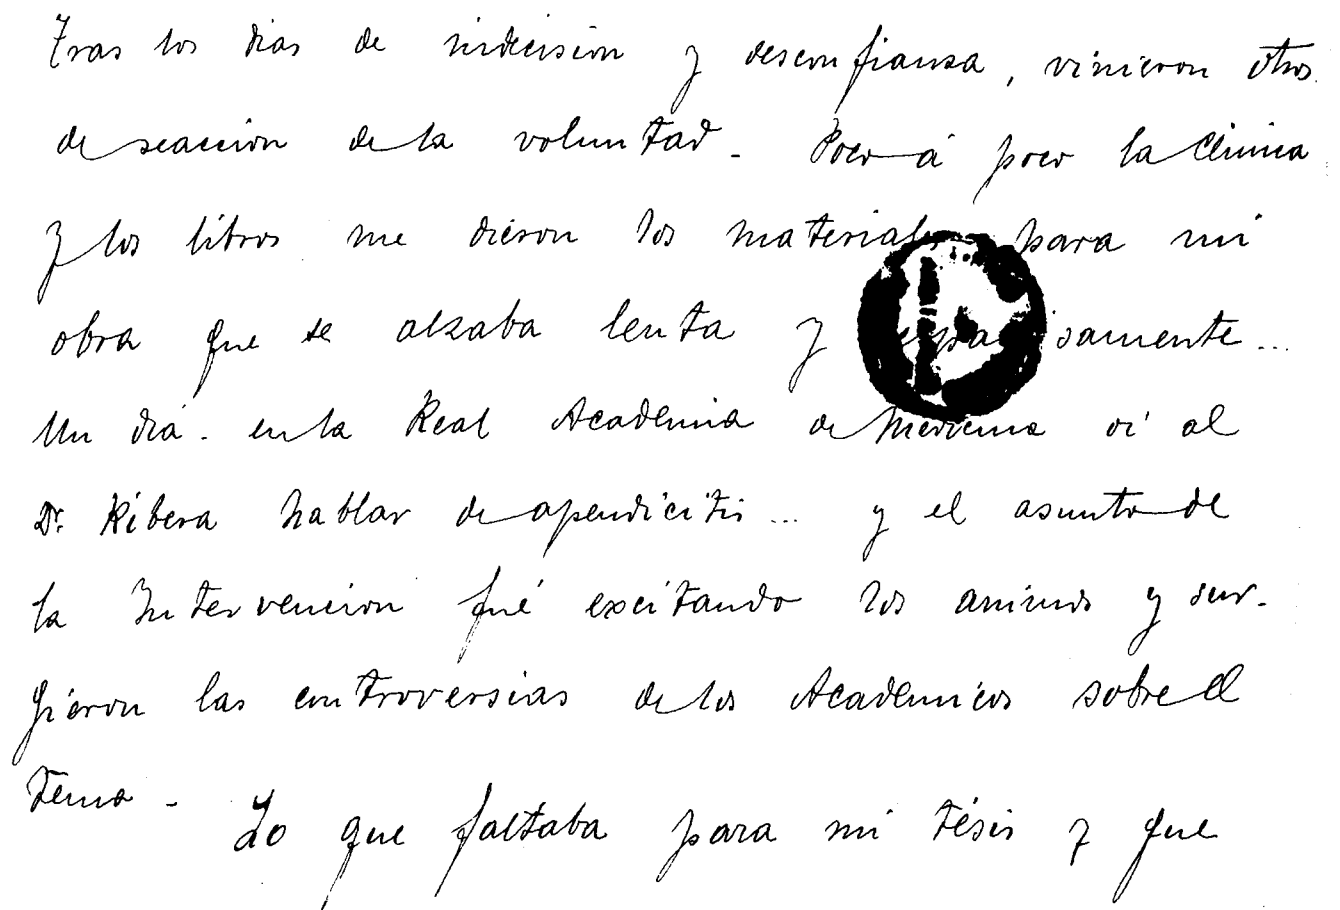 Tras los dias de indecision y desconfianza, vinieron otros
de reaccion de la voluntad. Poco á poco la Clinica
y los libros me dieron los materiales para mi
obra que se alzaba lenta y samente...
Un dia. en la Real Academia de Medicina oí al
Dr. Ribera hablar de apendicitis... y el asunto de
la Intervencion fué excitando los animos y sur-
gieron las controversias de los Academicos sobre el
tema. Lo que faltaba para mi tésis y que